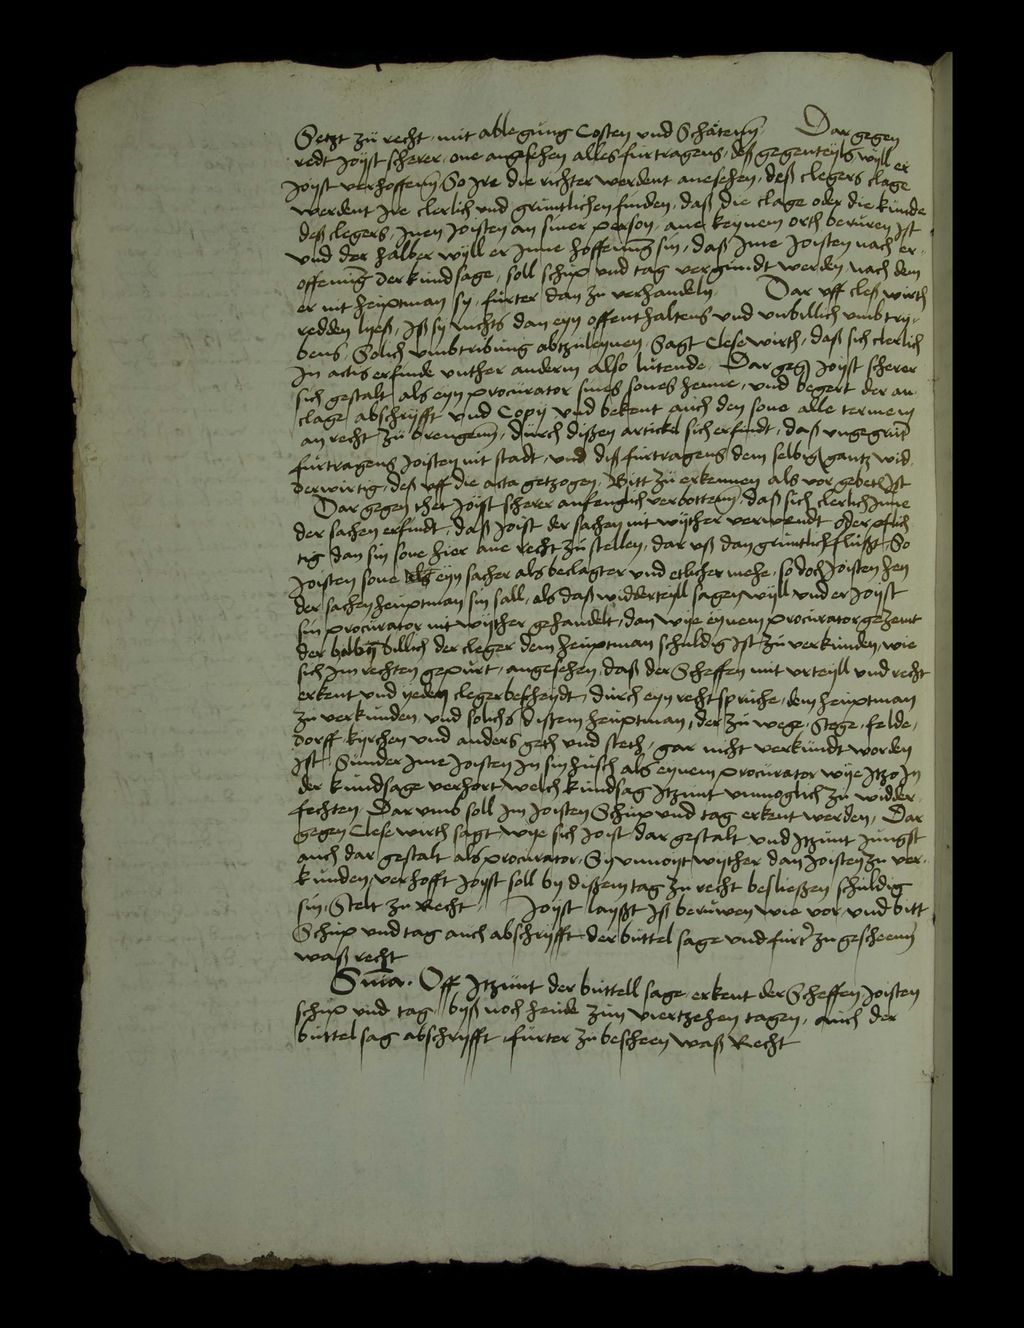 Setzt zü recht, mit ablegüng Costen vnd Schäten Dar gegen
redt Joist scherer, one angesehen alles fürtragens, deß gegenteyls will er
Joist verhoffen So Jre die richter werdent anesehen, deß clegers clage
werdent Jre clerlich vnd gruntlichen finden, daß die clage oder die künde
deß clegers, Jnen Joisten an siner person, ane keynem orth berüren ist
vnd der halber wyll er Jnne hoffenüng sin, daß Jme Joisten nach er-
offenüng der kündsage, soll schüp vnd tag vergündt werden, nach dem
er nit heüptman sy, fürter dan zu verhandeln. Dar vff cleß wirth
redden lyeß, Jß sy nichts dan eyn offenthaltens vnd vnbillich vmbtry-
bens, Solich vmbtribüng abtzüleynen, Sagt Clese wirth, daß sich clerlich
Jn actis erfinde vnther anderm also lütende. Dar gegen Joist scherer
sich gestalt als eyn procürator sines sones henne, vnd begert der an-
clage abschryfft vnd Copij vnd bekent auch den sone alle termein
an recht zü brengen, dürch dißen artickel sich erfindt, daß vngegrünt
fürtragens Joisten nit stadt, vnd diß fürtragens dem selbigen gantz wid-
derwirtig, deß vff die acta getzogen, Bitt zü erkennen als vor gebeth ist
Dar gegen thet Joist scherer anfenglich verbotten, daß sich clerlich Jnne
der sachen erfindt, daß Joist der sachen nit wyther verwendt oder pflich-
tig dan sin sone hier ane recht zü stellen, dar vß dan gruntlich flüßt, So
Joisten sone als eyn sacher als beclagter vnd etlicher mehe, so doch Joisten hen
der sachen heuptman sin sall, als daß widderteyll sagen wyll vnd er Joist
sin procürator nit wyther gehandelt, dan wye eynem procürator gezemt
der halben billich der cleger dem heüptman schüldig ist zü verkünden, wie
sich Jm rechten gepürt, angesehen, daß der Scheffen mit vrteyll vnd recht
erkent vnd yedem cleger bescheydt, dürch eyn recht sprüche, dem heüptman
zü verkünden, vnd solichs dißem heüptman, der zü wege, stege, felde,
dorff kyrchen vnd anders geth vnd steth, gar nicht verkündt worden
ist, Sünder Jme Joisten Jn sin hüsch als eynem procürator wye Jtzo Jn
der kündsage verhort welch kündsag Jtzünt vnmoglich zü widder-
fechten Dar vmb soll Jm Joisten Schüp vnd tag erkent werden, Dar
gegen Clese wirth sagt wye sich Joist dar gestalt vnd Jtzünt Jüngst
auch dar gestalt als procürator, Sy vnnoyt wyther dan Joisten zu ver-
künden, verhofft Joyst soll by dißem tag zu recht besließen schüldig
sin, Stelt zu Recht. Joyst layßt Jß berüwen wie vor, vnd bitt
Schüp vnd tag auch abschryfft der büttel sage vnd fürter zu gescheen
waß recht
Sma. Off Jtzünt der büttell sage erkent der Scheffen Joisten
schüp vnd tag, byß noch heüde züm viertzehen tagen, auch der
büttel sag abschryfft, fürter zü bescheen waß Recht